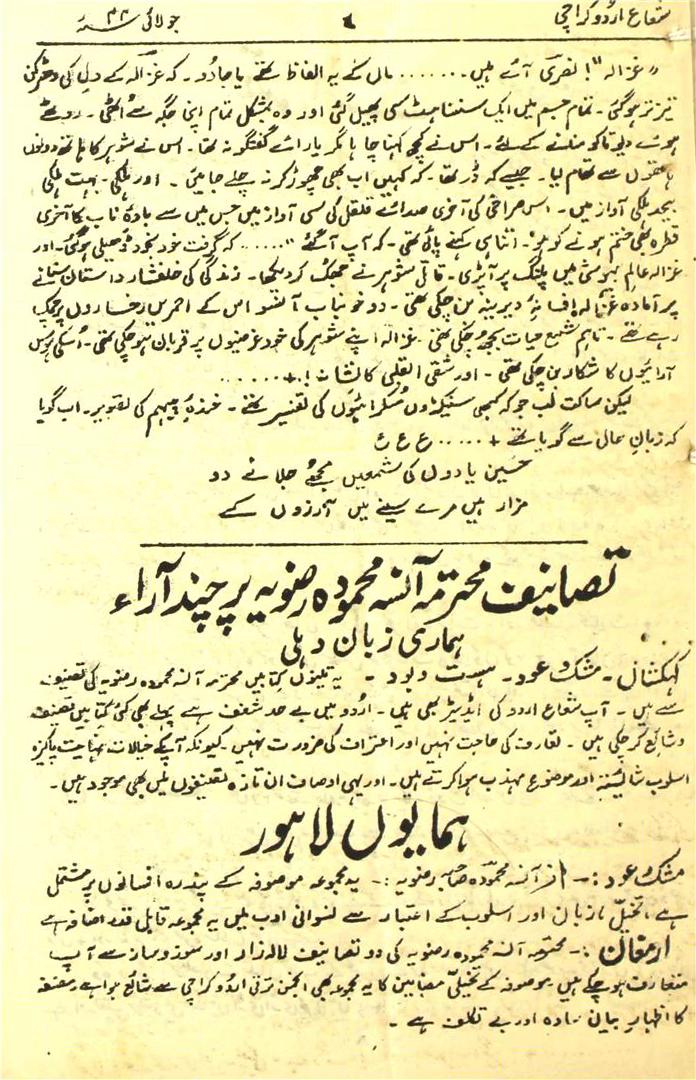 شعاع اردو کراچی ۶ جولائی ۴۴ سنہ
"غزالہ"! نصری آئے ہیں ....... ماں کے یہ الفاظ تھے یا جادو۔ کہ غزالہ کے دل کی دھڑکن
تیز تر ہوگئی۔ تمام جسم میں ایک سنسناہٹ سی پھیل گئی اور وہ بمشکل تمام اپنی جگہ سے اُٹھی۔ روٹھے
ہوئے دیوتا کو منانے کے لئے۔ اس نے کچھ کہنا چاہا مگر یارائے گفتگو نہ تھا۔ اس نے شوہر کا ہاتھ دونوں
ہاتھوں سے تھام لیا۔ جیسے کہ ڈر تھا۔ کہ کہیں اب بھی چھوڑ کر نہ چلے جائیں۔ اور ہلکی۔ بہت ہلکی
بیحد ہلکی آواز میں۔ اس صراحی کی آخری صدائے قلقل کی سی آواز میں جس میں سے بادۂ ناب کا آخری
قطرہ بھی ختم ہونے کو ہو۔ اتنا ہی کہنے پائی تھی۔ کہ آپ آگئے" ..... کہ گرفت خود بخود ڈھیلی ہوگئی۔ اور
غزالہ عالم بیہوشی میں پلنگ پر آپڑی۔ قاتل شوہر نے جھک کر دیکھا۔ زندگی کی خلفشار داستان سنانے
پر آمادہ غزالہ افسانۂ دیرینہ بن چکی تھی۔ دو خوناب آنسو اس کے احمریں رخساروں پر چمک
رہے تھے۔ تاہم شمع حیات بجھ چکی تھی۔ غزالہ اپنے شوہر کی خود غرضیوں پر قربان ہوچکی تھی۔ اُسکی ہوس
آرائیوں کا شکار بن چکی تھی۔ اور شقی القلبی کا نشانہ!.+......
لیکن ساکت لب جو کہ کبھی سینکڑوں مُسکراہٹوں کی تفسیر تھے۔ خندۂ پیہم کی تصویر۔ اب گویا
کہ زبانِ حال سے گویا تھے +..... ع ع ع
حسین یادوں کی شمعیں مجھے جلانے دو
مزار ہیں مرے سینے میں آرزوں کے
تصانیف محترمہ آنسہ محمودہ رضویہ پر چند آراء
ہماری زبان دہلی
کہکشاں۔ مشک و عود۔ ہست و بود۔ یہ تینوں کتابیں محترمہ آنسہ محمودہ رضویہ کی تصنیف
سے ہیں۔ آپ شعاع اردو کی ایڈیٹر بھی ہیں۔ اردو میں بے حد شغف سے پہلے بھی کئی کتابیں تصنیف
و شائع کرچکی ہیں۔ تعارف کی حاجت نہیں اور اعتراف کی ضرورت نہیں۔ کیونکہ آپ کے خیالات نہایت پاکیزہ
اسلوب شائستہ اور موضوع مہذب ہوا کرتے ہیں۔ اور یہی اوصاف ان تازہ تصنیفوں میں بھی موجود ہیں۔
ہمایوں لاہور
مشک و عود:۔ از آنسہ محمودہ صاحبہ رضویہ:۔ یہ مجموعہ موصوفہ کے پندرہ افسانوں پر مشتمل
ہے، تخیل، زبان اور اسلوب کے اعتبار سے نسوانی ادب میں یہ مجموعہ قابل قدر اضافہ ہے
ارمغان:۔ محترمہ آنسہ محمودہ رضویہ کی دو تصانیف لالہ زار اور سوز و ساز سے آپ
متعارف ہوچکے ہیں۔ موصوفہ کے تخیلی مضامین کا یہ مجموعہ بھی انجمن ترقی اردو کراچی سے شائع ہوا ہے۔ مصنفہ
کا اظہارِ بیان سادہ اور بے تکلف ہے۔